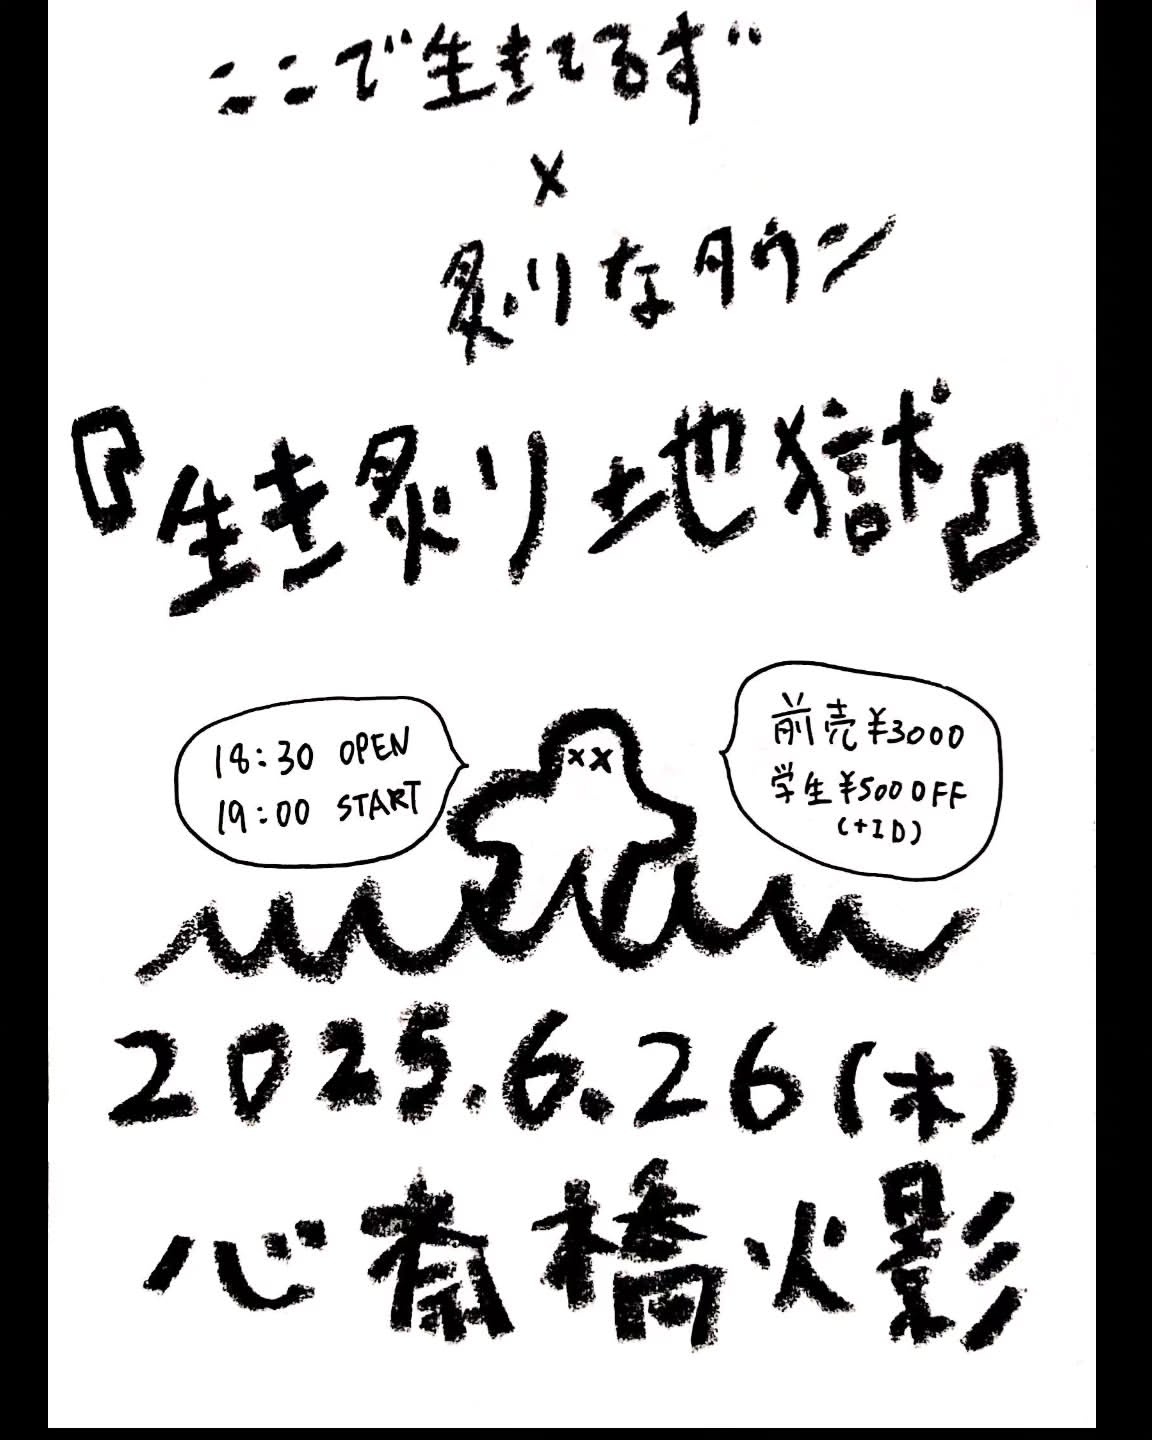 ここで生きてるず
×
炙りなタウン
『生き炙り地獄』
18:30 OPEN
19:00 START
前売¥3000
学生¥500OFF
(+ID)
2025.6.26(木)
心斎橋火影